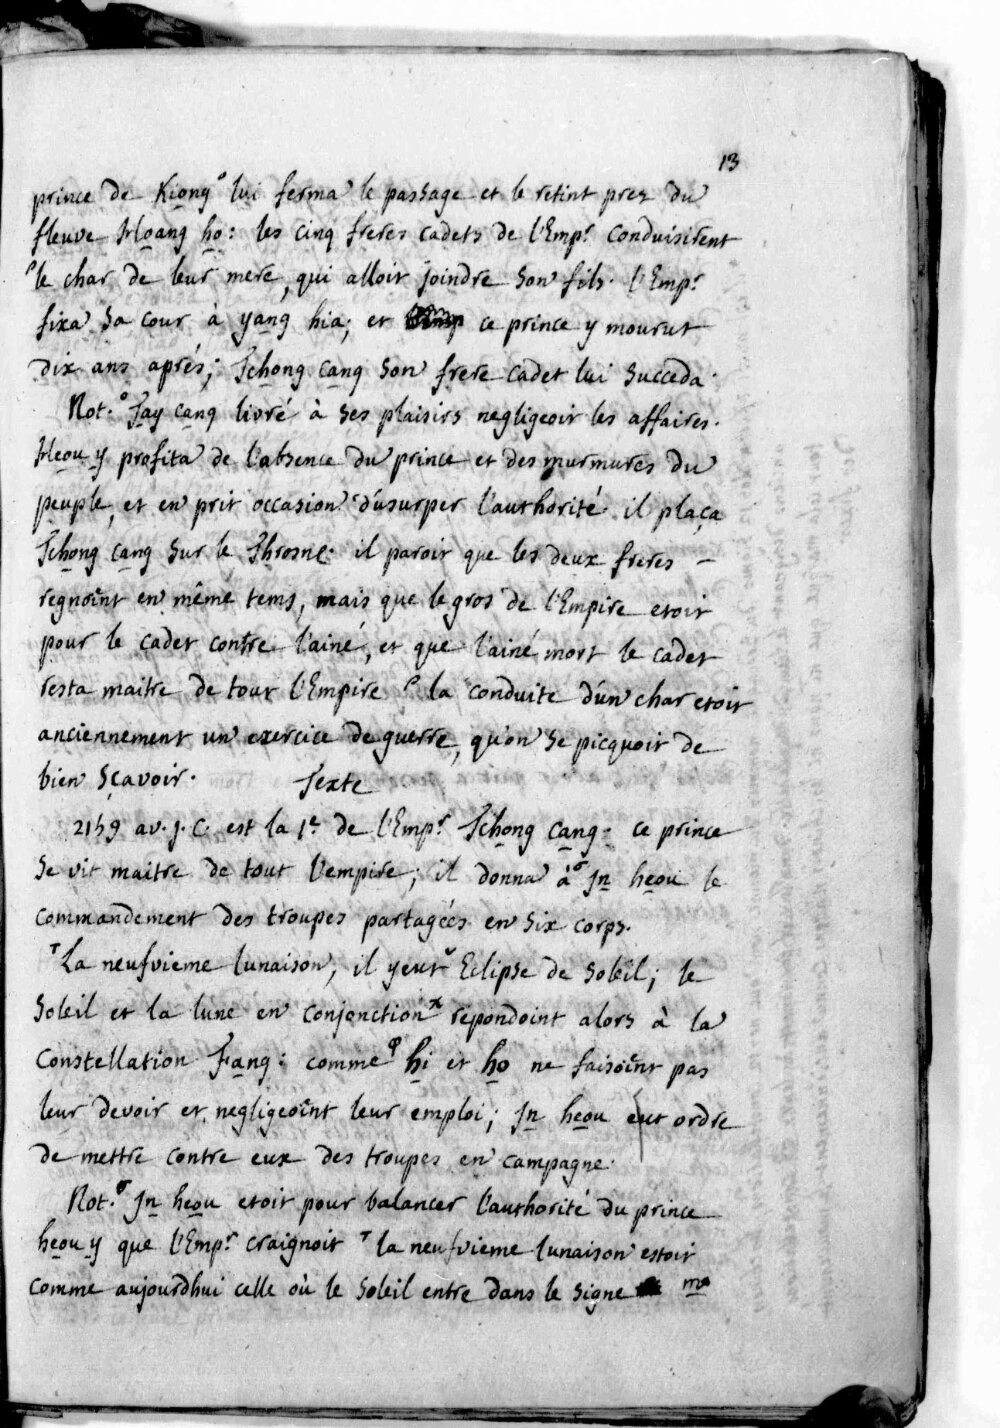 13
prince de Kiong° lui ferma le passage et le retint prez du
fleuve Hoang ho: les cinq freres cadets de l'Emp.r conduisirent
p le char de leur mere, qui alloit joindre son fils. l'Emp.r
fixa sa cour à yang hia; et ce prince y mourut
dix ans aprés; Tchong cang son frere cadet lui succeda.
Not.° Tay cang livré à ses plaisirs negligeoit les affaires.
Heou y profita de l'absence du prince et des murmures du
peuple, et en prit occasion d'usurper l'authorité. il plaça
Tchong cang sur le Throsne. il paroit que les deux freres –
regnoint en même tems, mais que le gros de l'Empire etoit
pour le cadet contre l'ainé, et que l'ainé mort le cadet
resta maitre de tout l'Empire p la conduite d'un char etoit
anciennement un exercice de guerre, qu'on se picquoit de
bien sçavoir.
Texte
2159 av. J. C. est la 1e de l'Emp.r Tchong cang. ce prince
se vit maitre de tout l'empire; il donna à σ In heou le
commandement des troupes partagées en six corps.
T La neufvieme lunaison, il y eut v Eclipse de soleil; le
soleil et la lune en conjonction x repondoint alors à la
Constellation Fang: comme φ hi et ho ne faisoint pas
leur devoir et negligeoint leur emploi; In heou eut ordre
de mettre contre eux des troupes en campagne.
Not. σ In heou etoit pour balancer l'authorité du prince
heou y que l'Emp.r craignoit T la neufvieme lunaison estoit
comme aujourdhui celle où le soleil entre dans le signe m